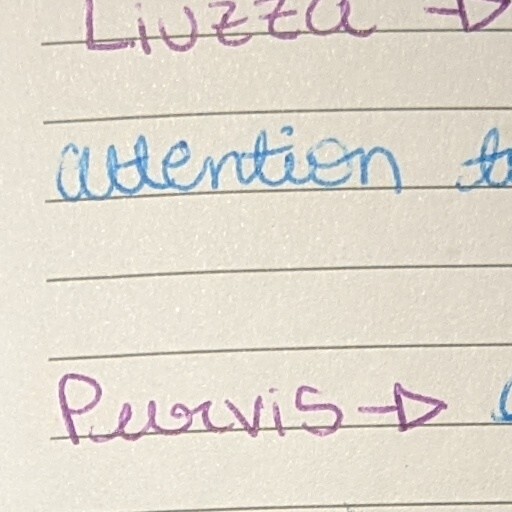 Liuzza →
attention
Purvis →